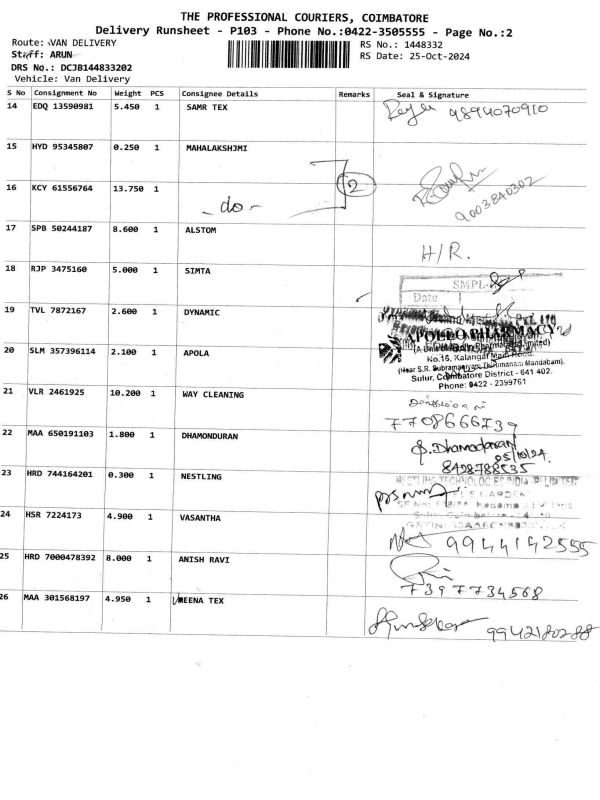 THE PROFESSIONAL COURIERS, COIMBATORE
Delivery Runsheet - P103 - Phone No.:0422-3505555 - Page No.:2
Route: VAN DELIVERY
RS No.: 1448332
Staff: ARUN
RS Date: 25-Oct-2024
DRS No.: DCJB144833202
Vehicle: Van Delivery
S No Consignment No Weight PCS Consignee Details Remarks Seal & Signature
14 EDQ 13590981 5.450 1 SAMR TEX 9894070910
15 HYD 95345807 0.250 1 MAHALAKSHJMI
16 KCY 61556764 13.750 1 -do- 2 9003840302
17 SPB 50244187 8.600 1 ALSTOM H/R.
18 RJP 3475160 5.000 1 SIMTA SMPL-
Date
19 TVL 7872167 2.600 1 DYNAMIC
APOLLO PHARMACY
20 SLM 357396114 2.100 1 APOLA
No.16, Kalangal Main Road,
Sulur, Coimbatore District - 641 402.
Phone: 0422 - 2399761
21 VLR 2461925 10.200 1 WAY CLEANING
7708666739
22 MAA 650191103 1.800 1 DHAMONDURAN S. Dhamodaran
25/10/24
8428788535
23 HRD 744164201 0.300 1 NESTLING NESTLING TECHNOLOGIES INDIA P LIMITED
24 HSR 7224173 4.900 1 VASANTHA
9944142555
25 HRD 7000478392 8.000 1 ANISH RAVI
7397734568
26 MAA 301568197 4.950 1 MEENA TEX
9942180288